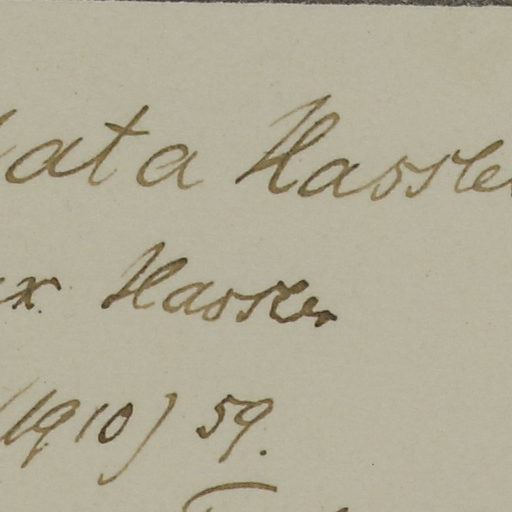 lata Hassle
ex Hassler
(1910) 59.